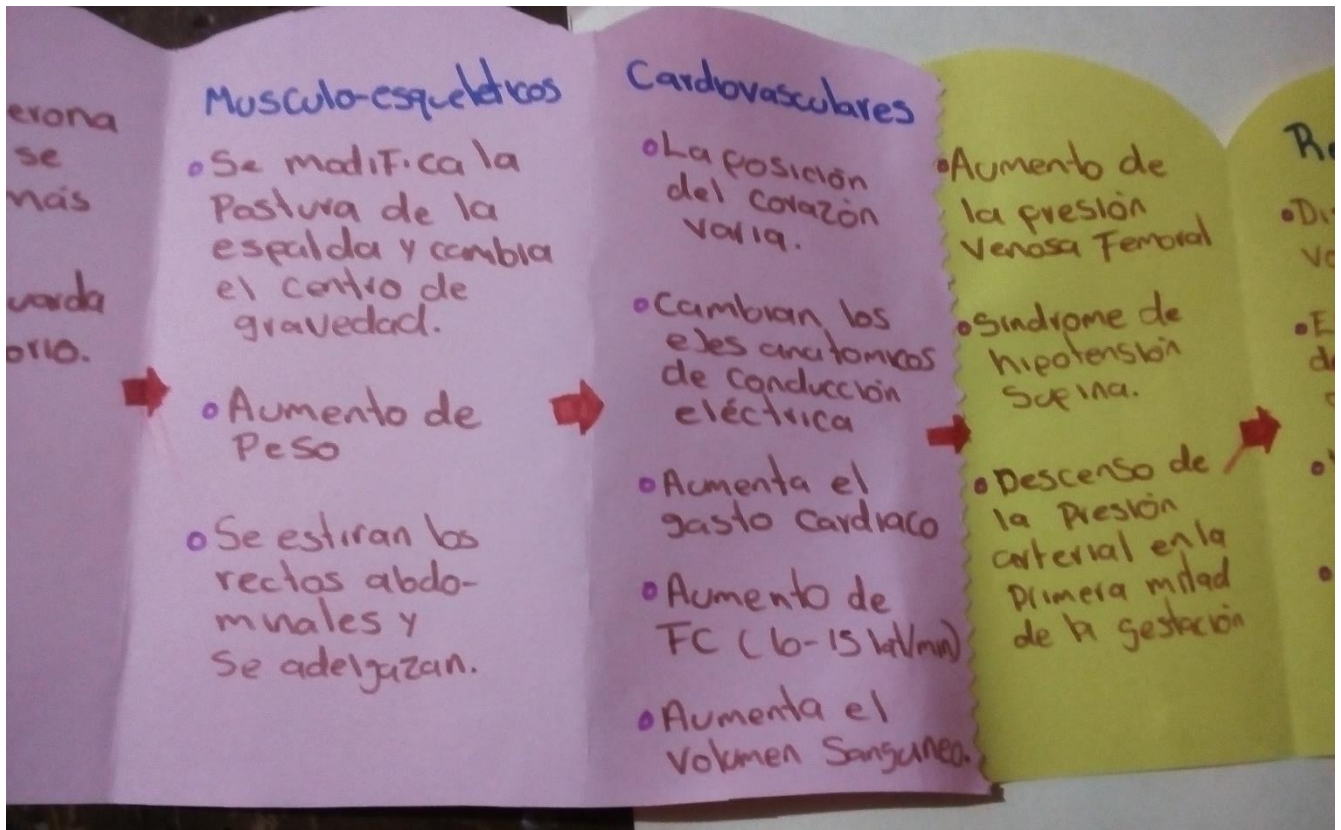 erona
se
más
uarda
orio.
Musculo-esqueléticos
Se modifica la
Postura de la
espalda y cambia
el centro de
gravedad.
Aumento de
Peso
Se estiran los
rectos abdo-
minales y
Se adelgazan.
Cardiovasculares
La posición
del corazón
varia.
Cambian los
ejes anatomicos
de conducción
eléctrica
Aumenta el
gasto cardiaco
Aumento de
FC (10-15 lat/min)
Aumenta el
Volumen Sanguneo.
Aumento de
la presión
Venosa Femoral
Sindrome de
hipotensión
Supina.
Descenso de
la Presión
arterial en la
Primera mitad
de la gestación
R
Di
Vo
E
de